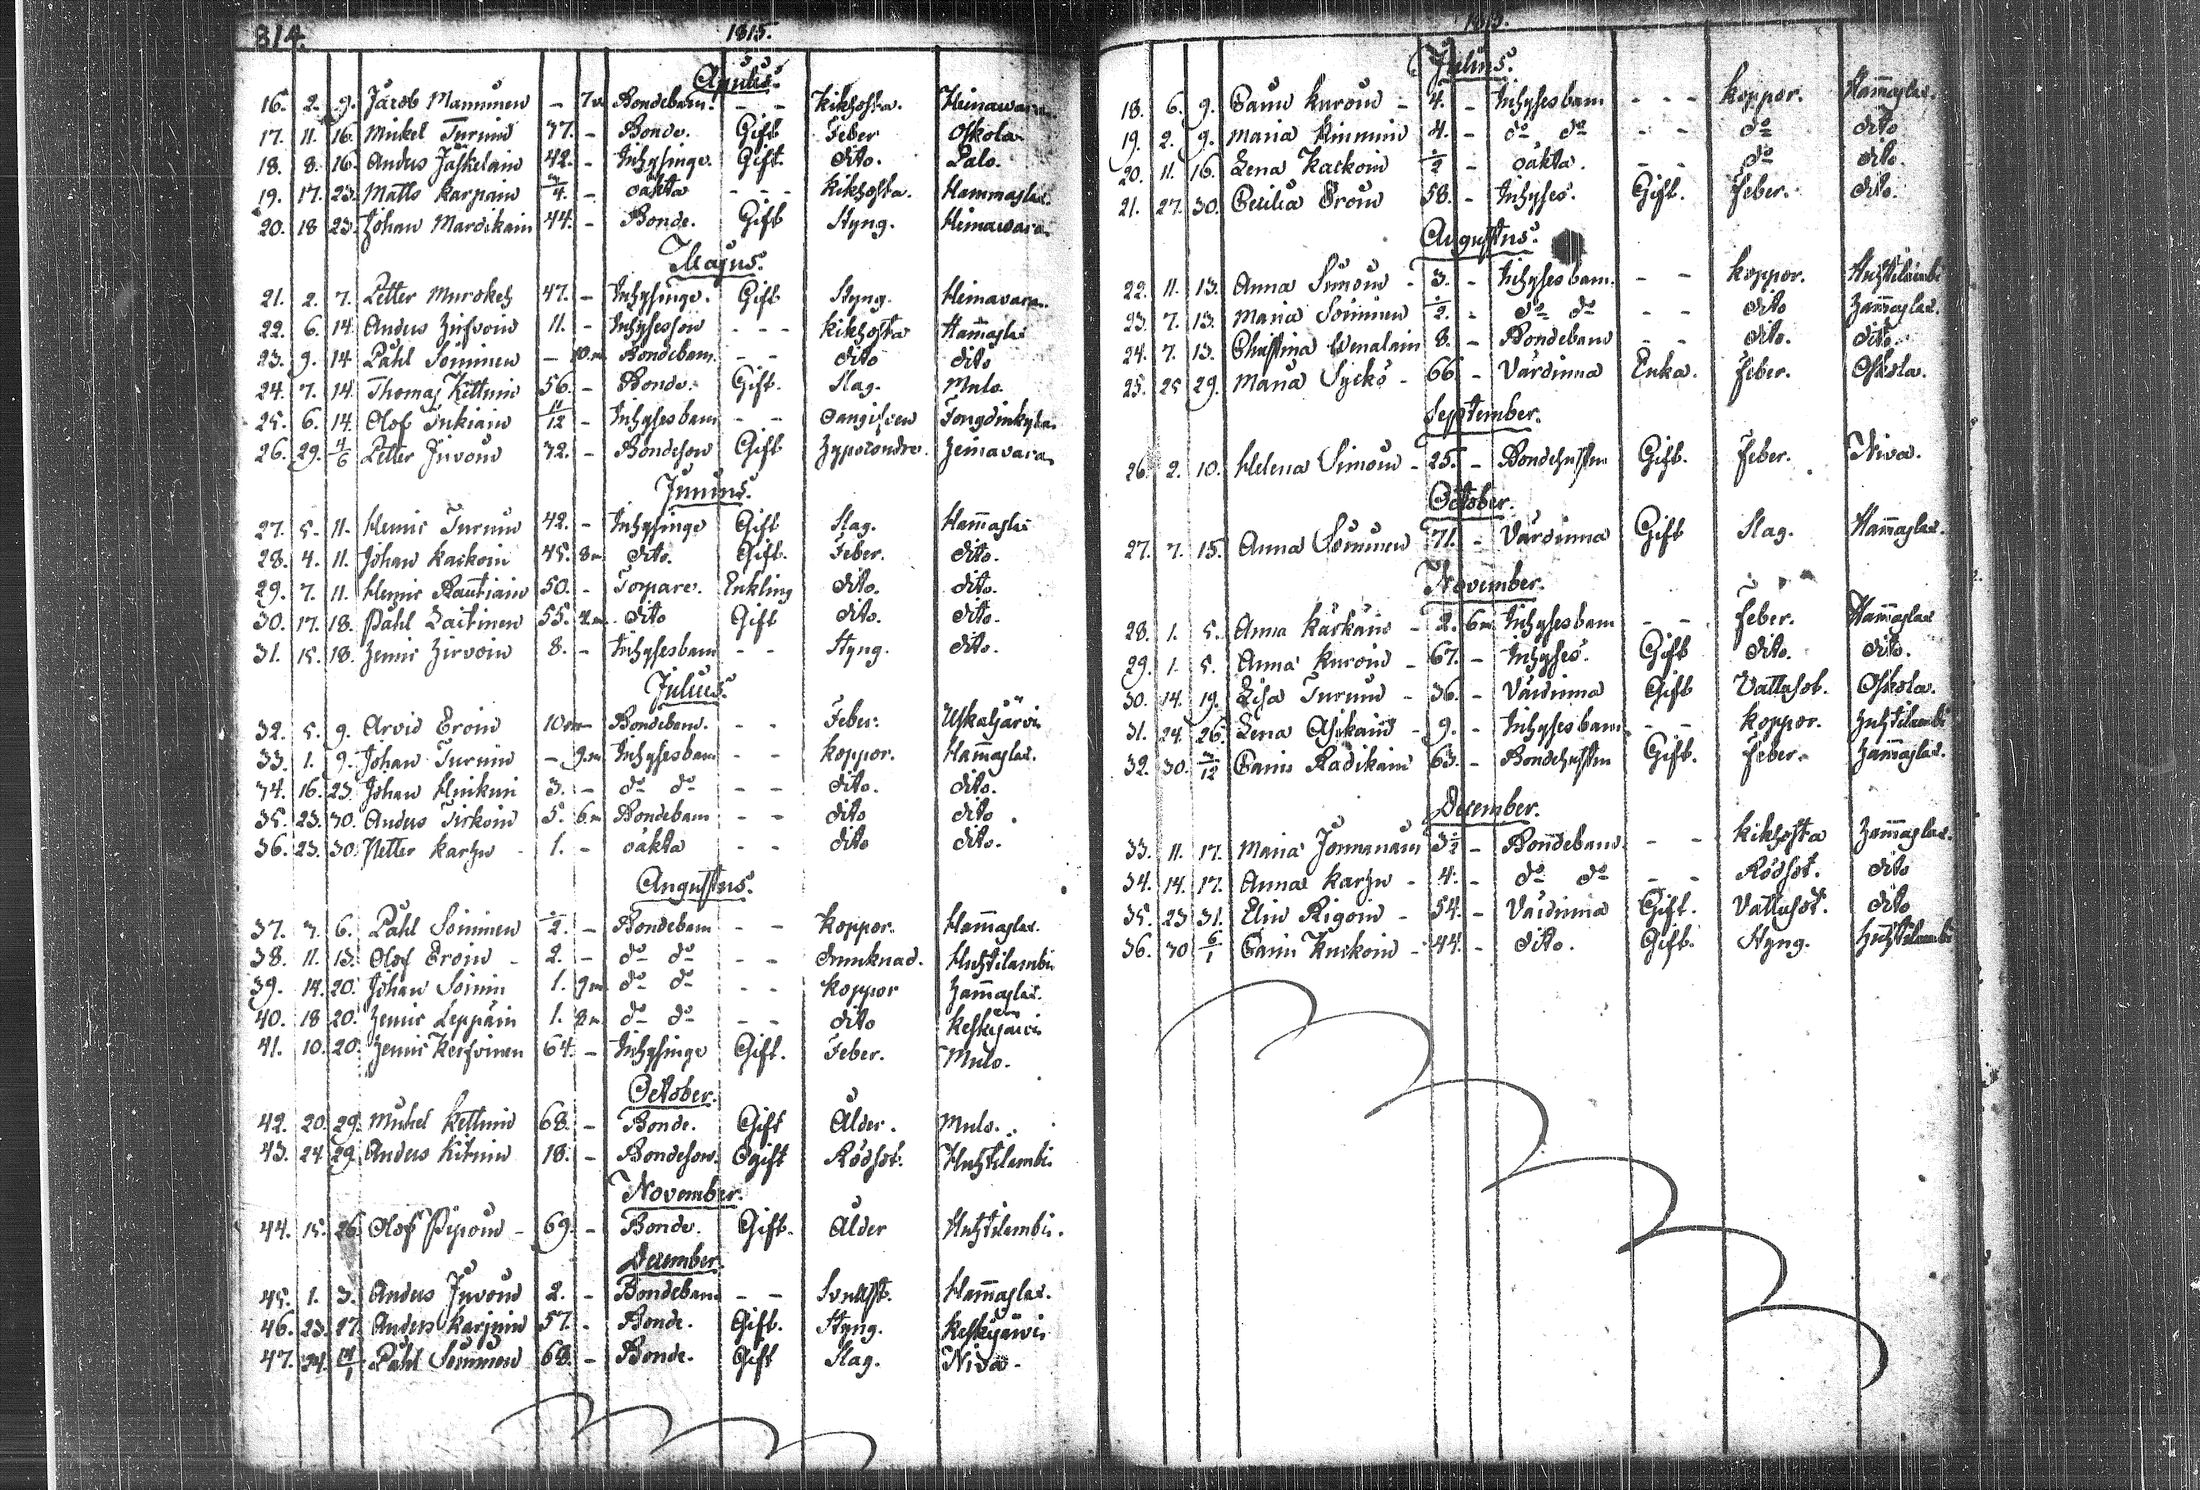 814.
1815.
Aprilis.
16. 2. 9. Jacob Manninen - 7m Bondebarn. - - Kikhosta. Heinawara.
17. 11. 16. Mickel Turuin 37. - Bonde. Gift Feber Oskola
18. 8. 16. Anders Jäskeläin 42. - Inhysinge. Gift. dito. Palo.
19. 17. 23. Matts Karpain 3/4. - oäkta - - - Kikhosta. Hammaslax.
20. 18 23. Johan Mardikain 44. - Bonde. Gift Styng. Heinawara.
Majus.
21. 2. 7. Petter Muroke 47. - Inhysinge. Gift Styng. Heinavara.
22. 6. 14. Anders Hirvoin 11. - Inhysesson - - - Kikhosta Ham̄aslax
23. 9. 14 Påhl Soininen - 10.m Bondebarn - - dito dito
24. 7. 14. Thomas Kettuin 56. - Bonde. Gift. Slag. Mulo.
25. 6. 14. Olof Tukiain 11/12 - Inhysesbarn - -
26. 29. 4/6 Petter Juvoin 32. - Bondeson Gift Heinavara
Junius.
27. 5. 11. Henric Turuin 42. - Inhysinge Gift Slag. Ham̄aslax
28. 4. 11. Johan Kackoin 45. 8m dito. Gift. Feber. dito.
29. 7. 11. Henric Rautiain 50. - Torpare. Enkling dito. dito.
30. 17. 18. Påhl Laitinen 55. 2.m dito Gift dito. dito.
31. 15. 18. Henric Hirvoin 8. - Inhysesbarn - - Styng. dito.
Julius.
32. 5. 9. Arvid Eroin 10 Bondebarn. - - Feber. Uskaljärvi
33. 1. 9. Johan Turuin - 9.m Inhysesbarn - - Koppor. Ham̄aslax.
34. 16. 23. Johan 3. - do do - - dito. dito.
35. 23. 30. Anders Tirkoin 5. 6.m Bondebarn - - dito dito.
36. 23. 30. Petter Karhu - 1. - oäkta - - dito dito.
Augustus.
37. 3. 6. Påhl Soininen 1/2. - Bondebarn - - Koppor. Ham̄aslax.
38. 11. 13. Olof Eroin - 2. - do do - - drunknad. Huhtilambi
39. 14. 20. Johan Soinin 1. 9m do do - - Koppor Ham̄aslax.
40. 18 20. Henric Leppäin 1. 2m do do - - dito Keskijärvi
41. 10. 20. Henric Kerfvinen 64. - Inhysinge Gift. Feber. Mulo.
October.
42. 20. 29. Mickel Kettuin 68. - Bonde. Gift Ålder. Mulo.
43. 24 29. Anders Kituin 18. - Bondeson. Ogift Rödsot. Huhtilambi.
November.
44. 15. 26. Olof Piipoin - 69. - Bonde. Gift. Ålder Huhtilambi.
December.
45. 1. 3. Anders Juvoin 2. - Bondebarn - - Ham̄aslax.
46. 23. 27. Anders Karjuin 57. - Bonde. Gift. Styng. Keskijärvi
47. 31. 14/1 Påhl Soininen 68. - Bonde. Gift Slag. Niva.
1815.
Julius.
18. 6. 9. Carin Kuroin - 4. - Inhysesbarn - - - Koppor. Ham̄aslax.
19. 2. 9. Maria Kinnuin 4. - do do - - do dito
20. 11. 16. Lena Kackoin 1/2 - oäkta. - - do dito
21. 27. 30. Cecilia Eroin 58. - Inhyses. Gift. Feber. dito.
Augustus.
22. 11. 13. Anna Simoin - 3. - Inhysesbarn. - - Koppor. Huhtilambi
23. 7. 13. Maria Soininen 1/2. - do do - - dito Ham̄aslax.
24. 7. 13. Christina Wenäläin 8. - Bondebarn - - dito. dito
25. 25 29. Maria Syckö - 66 - Värdinna Enka. Feber. Oskola.
September.
26. 2. 10. Helena Simoin - 25. - Bondehustru Gift. Feber. Niva.
October.
27. 7. 15. Anna Soininen 71. - Värdinna Gift Slag. Ham̄aslax.
November.
28. 1. 5. Anna Kärkäin - 2. 6m Inhysesbarn - - Feber. Ham̄aslax
29. 1. 5. Anna Kuroin - 67. - Inhyses. Gift dito. dito.
30. 14. 19. Lisa Turuin - 36. - Värdinna Gift Vattusot. Oskola.
31. 24. 26. Lena Asikain - 9. - Inhysesbarn - - Koppor. Huhtilambi
32. 30. 3/12 Carin Radikain 63. - Bondehustru Gift. Feber. Ham̄aslax.
December.
33. 11. 17. Maria Jormanain 3 1/2 - Bondebarn. - - Kikhosta Ham̄aslax.
34. 14. 17. Anna Karhu - 4. - do do - - Rödsot. dito
35. 23 31. Elin Rigoin - 54. - Värdinna Gift. Vattusot. dito
36. 30 6/1 Carin Kuckoin - 44. - dito. Gift. Styng. Huhtilambi